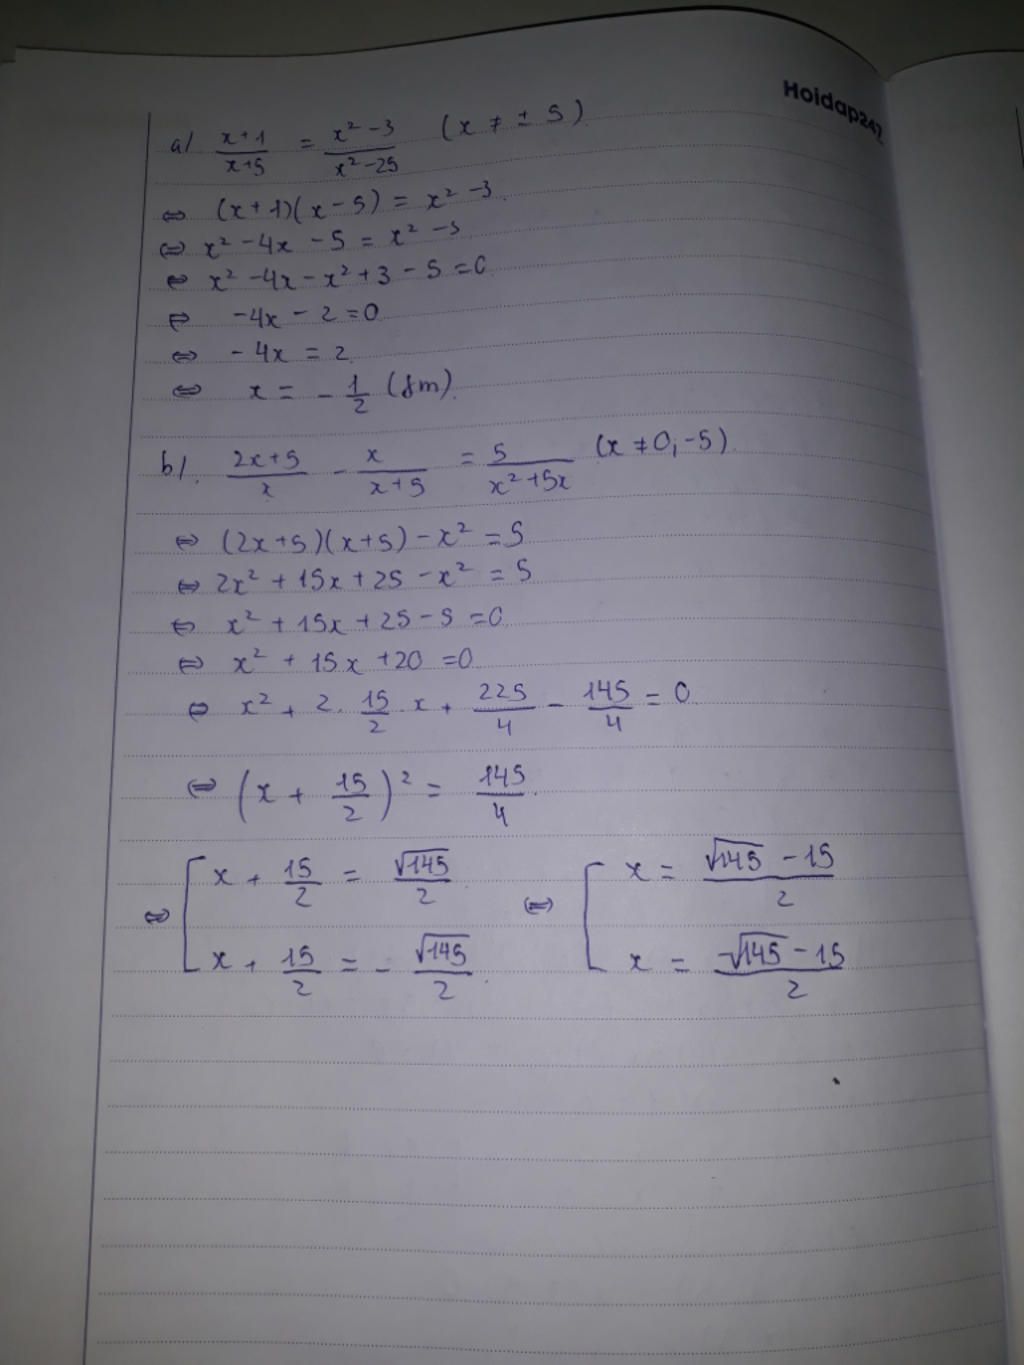 Hoidap247
a/ (x+1)/(x+5) = (x² -3)/(x² -25) (x ≠ ± 5)
⇔ (x+1)(x-5) = x² -3
⇔ x² -4x -5 = x² -3
⇔ x² -4x - x² +3 -5 =0
⇔ -4x - 2 =0
⇔ -4x = 2
⇔ x = - 1/2 (tm).
b/. (2x+5)/x - x/(x+5) = 5/(x² +5x) (x ≠ 0, -5)
⇔ (2x+5)(x+5) - x² = 5
⇔ 2x² + 15x + 25 - x² = 5
⇔ x² + 15x + 25 - 5 =0
⇔ x² + 15x +20 =0
⇔ x² + 2. 15/2 .x + 225/4 - 145/4 = 0
⇔ (x + 15/2)² = 145/4.
⇔ [ x + 15/2 = √145/2 ⇔ [ x = (√145 - 15)/2
x + 15/2 = - √145/2. x = (-√145 - 15)/2